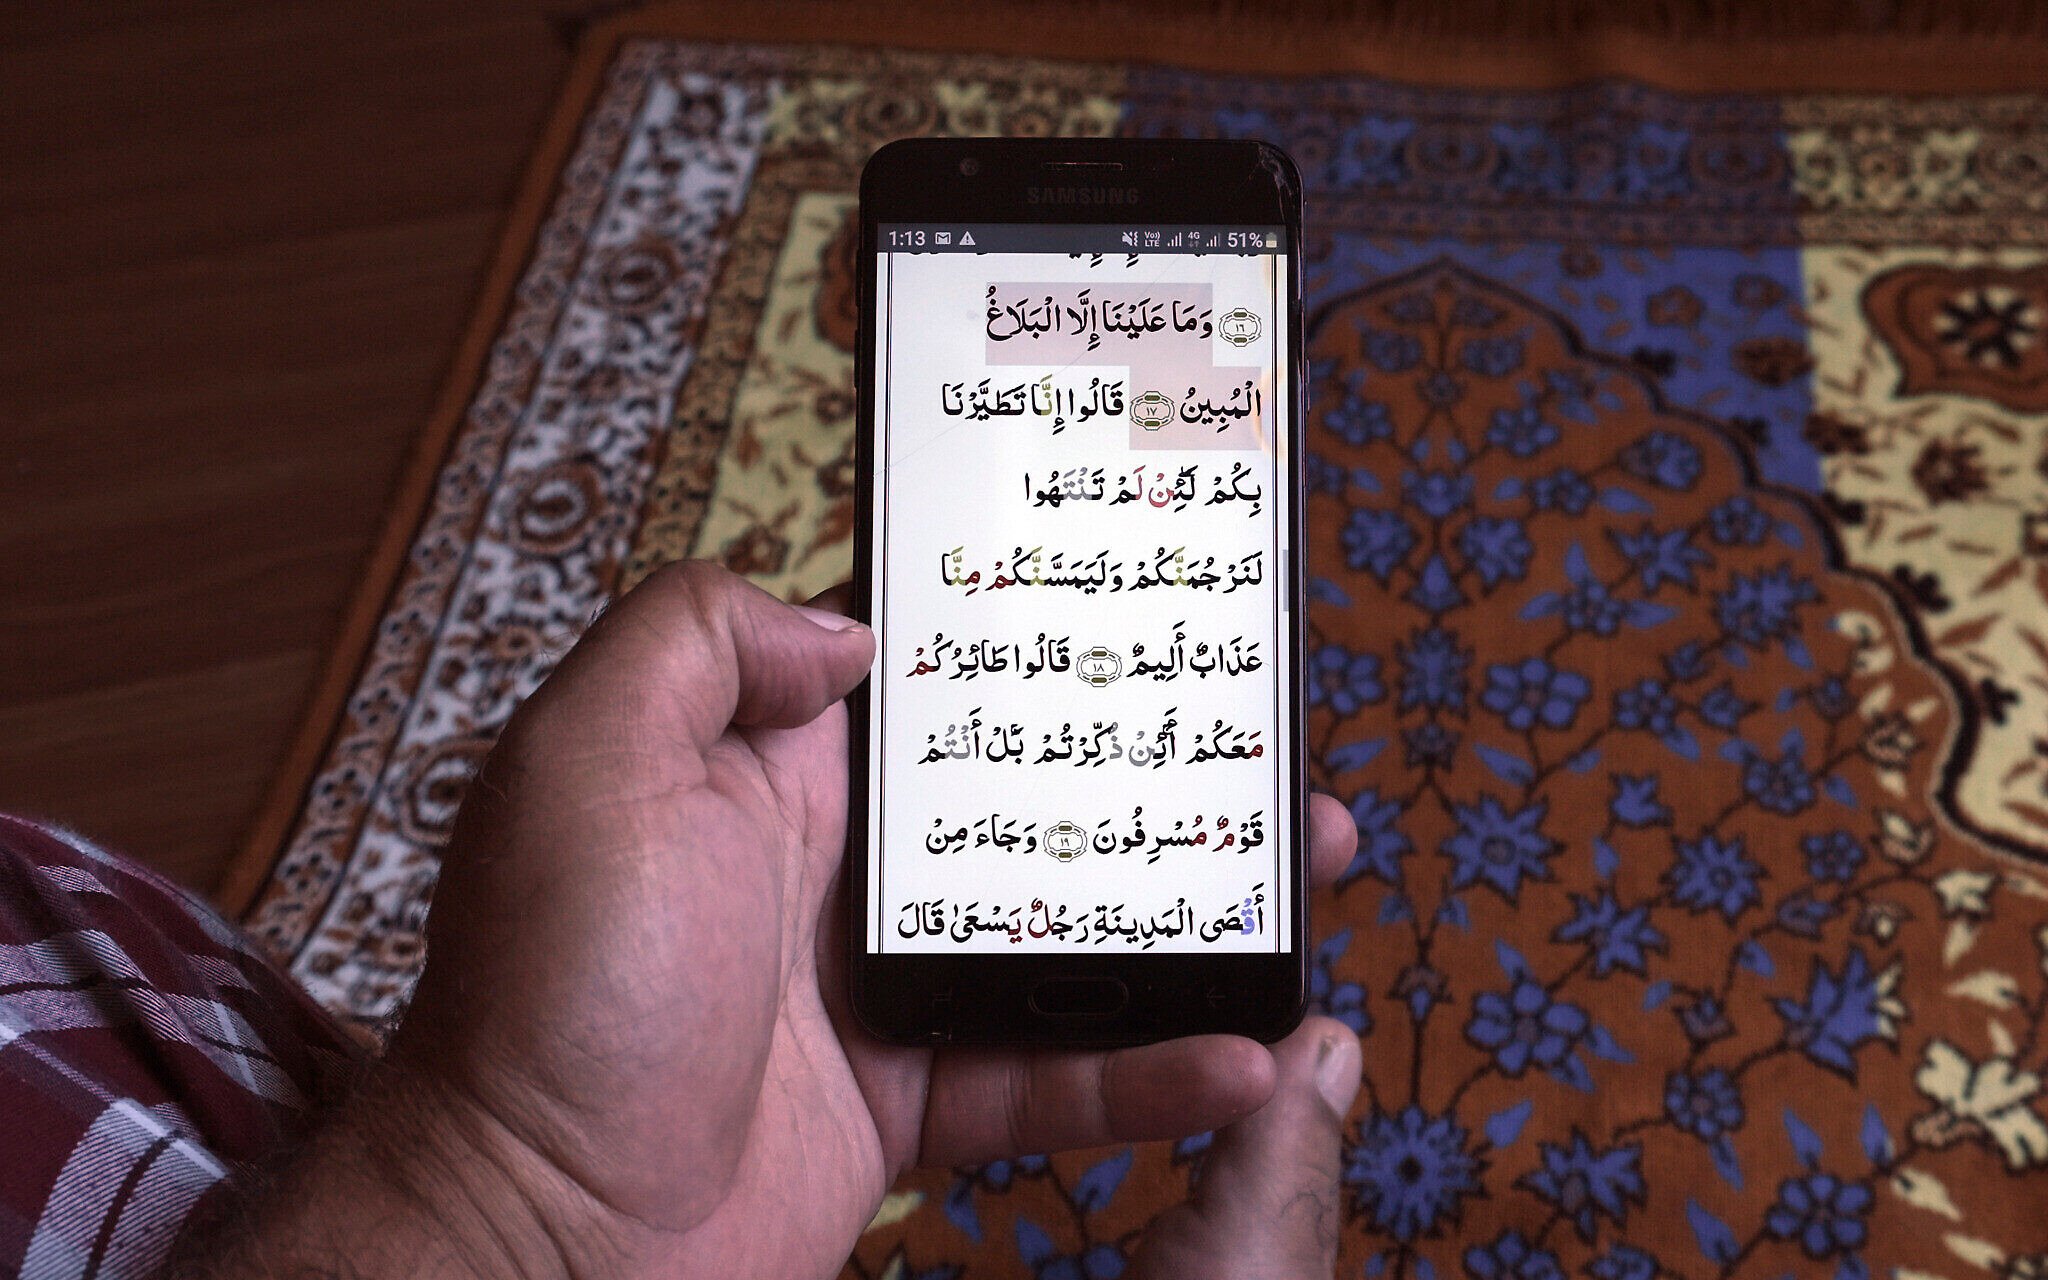 SAMSUNG
1:13 Vo) LTE 4G 51%
١٦ وَمَا عَلَيْنَا إِلَّا الْبَلَاغُ
الْمُبِينُ ١٧ قَالُوا إِنَّا تَطَيَّرْنَا
بِكُمْ لَئِنْ لَمْ تَنْتَهُوا
لَنَرْجُمَنَّكُمْ وَلَيَمَسَّنَّكُمْ مِنَّا
عَذَابٌ أَلِيمٌ ١٨ قَالُوا طَائِرُكُمْ
مَعَكُمْ أَئِنْ ذُكِّرْتُمْ بَلْ أَنْتُمْ
قَوْمٌ مُسْرِفُونَ ١٩ وَجَاءَ مِنْ
أَقْصَى الْمَدِينَةِ رَجُلٌ يَسْعَىٰ قَالَ